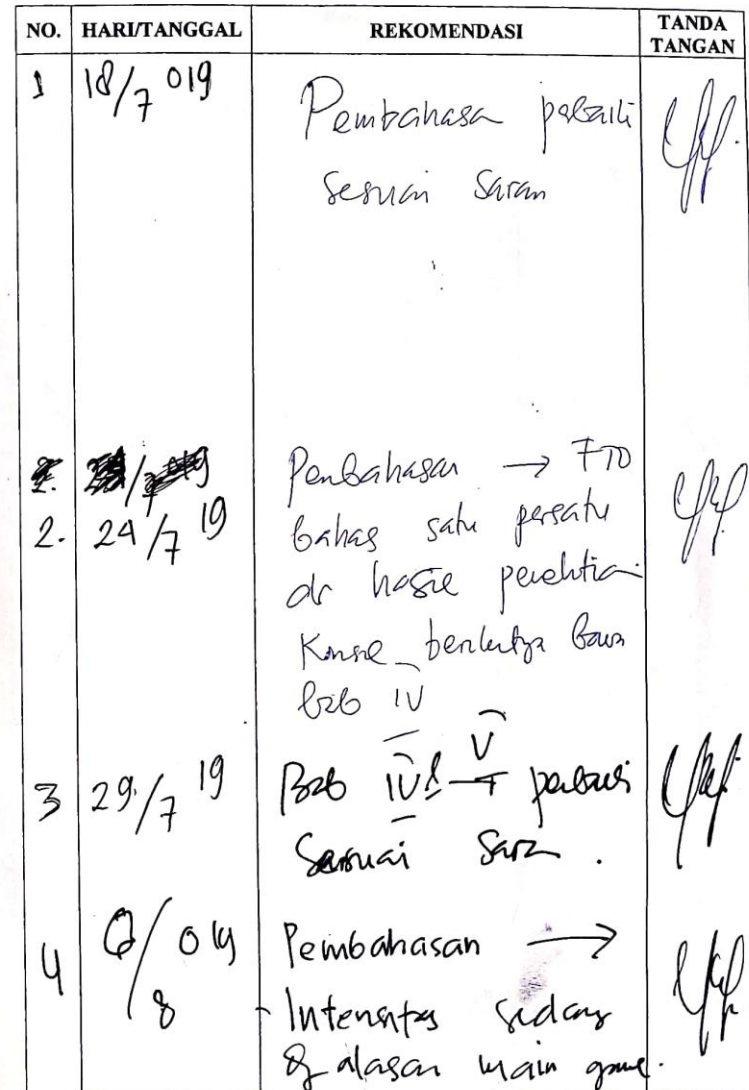 NO. HARI/TANGGAL REKOMENDASI TANDA TANGAN
1 18/7 019 Pembahasa perbaiki
sesuai saran
Pembahasan →
2. 24/7 19 bahas satu persatu
dr hasil penelitian
Konsul berikutnya bawa
bab IV
3 29/7 19 Bab IV & V perbaiki
Sesuai Saran.
4 /8 019 Pembahasan →
- Intensitas sedang
& alasan main game.